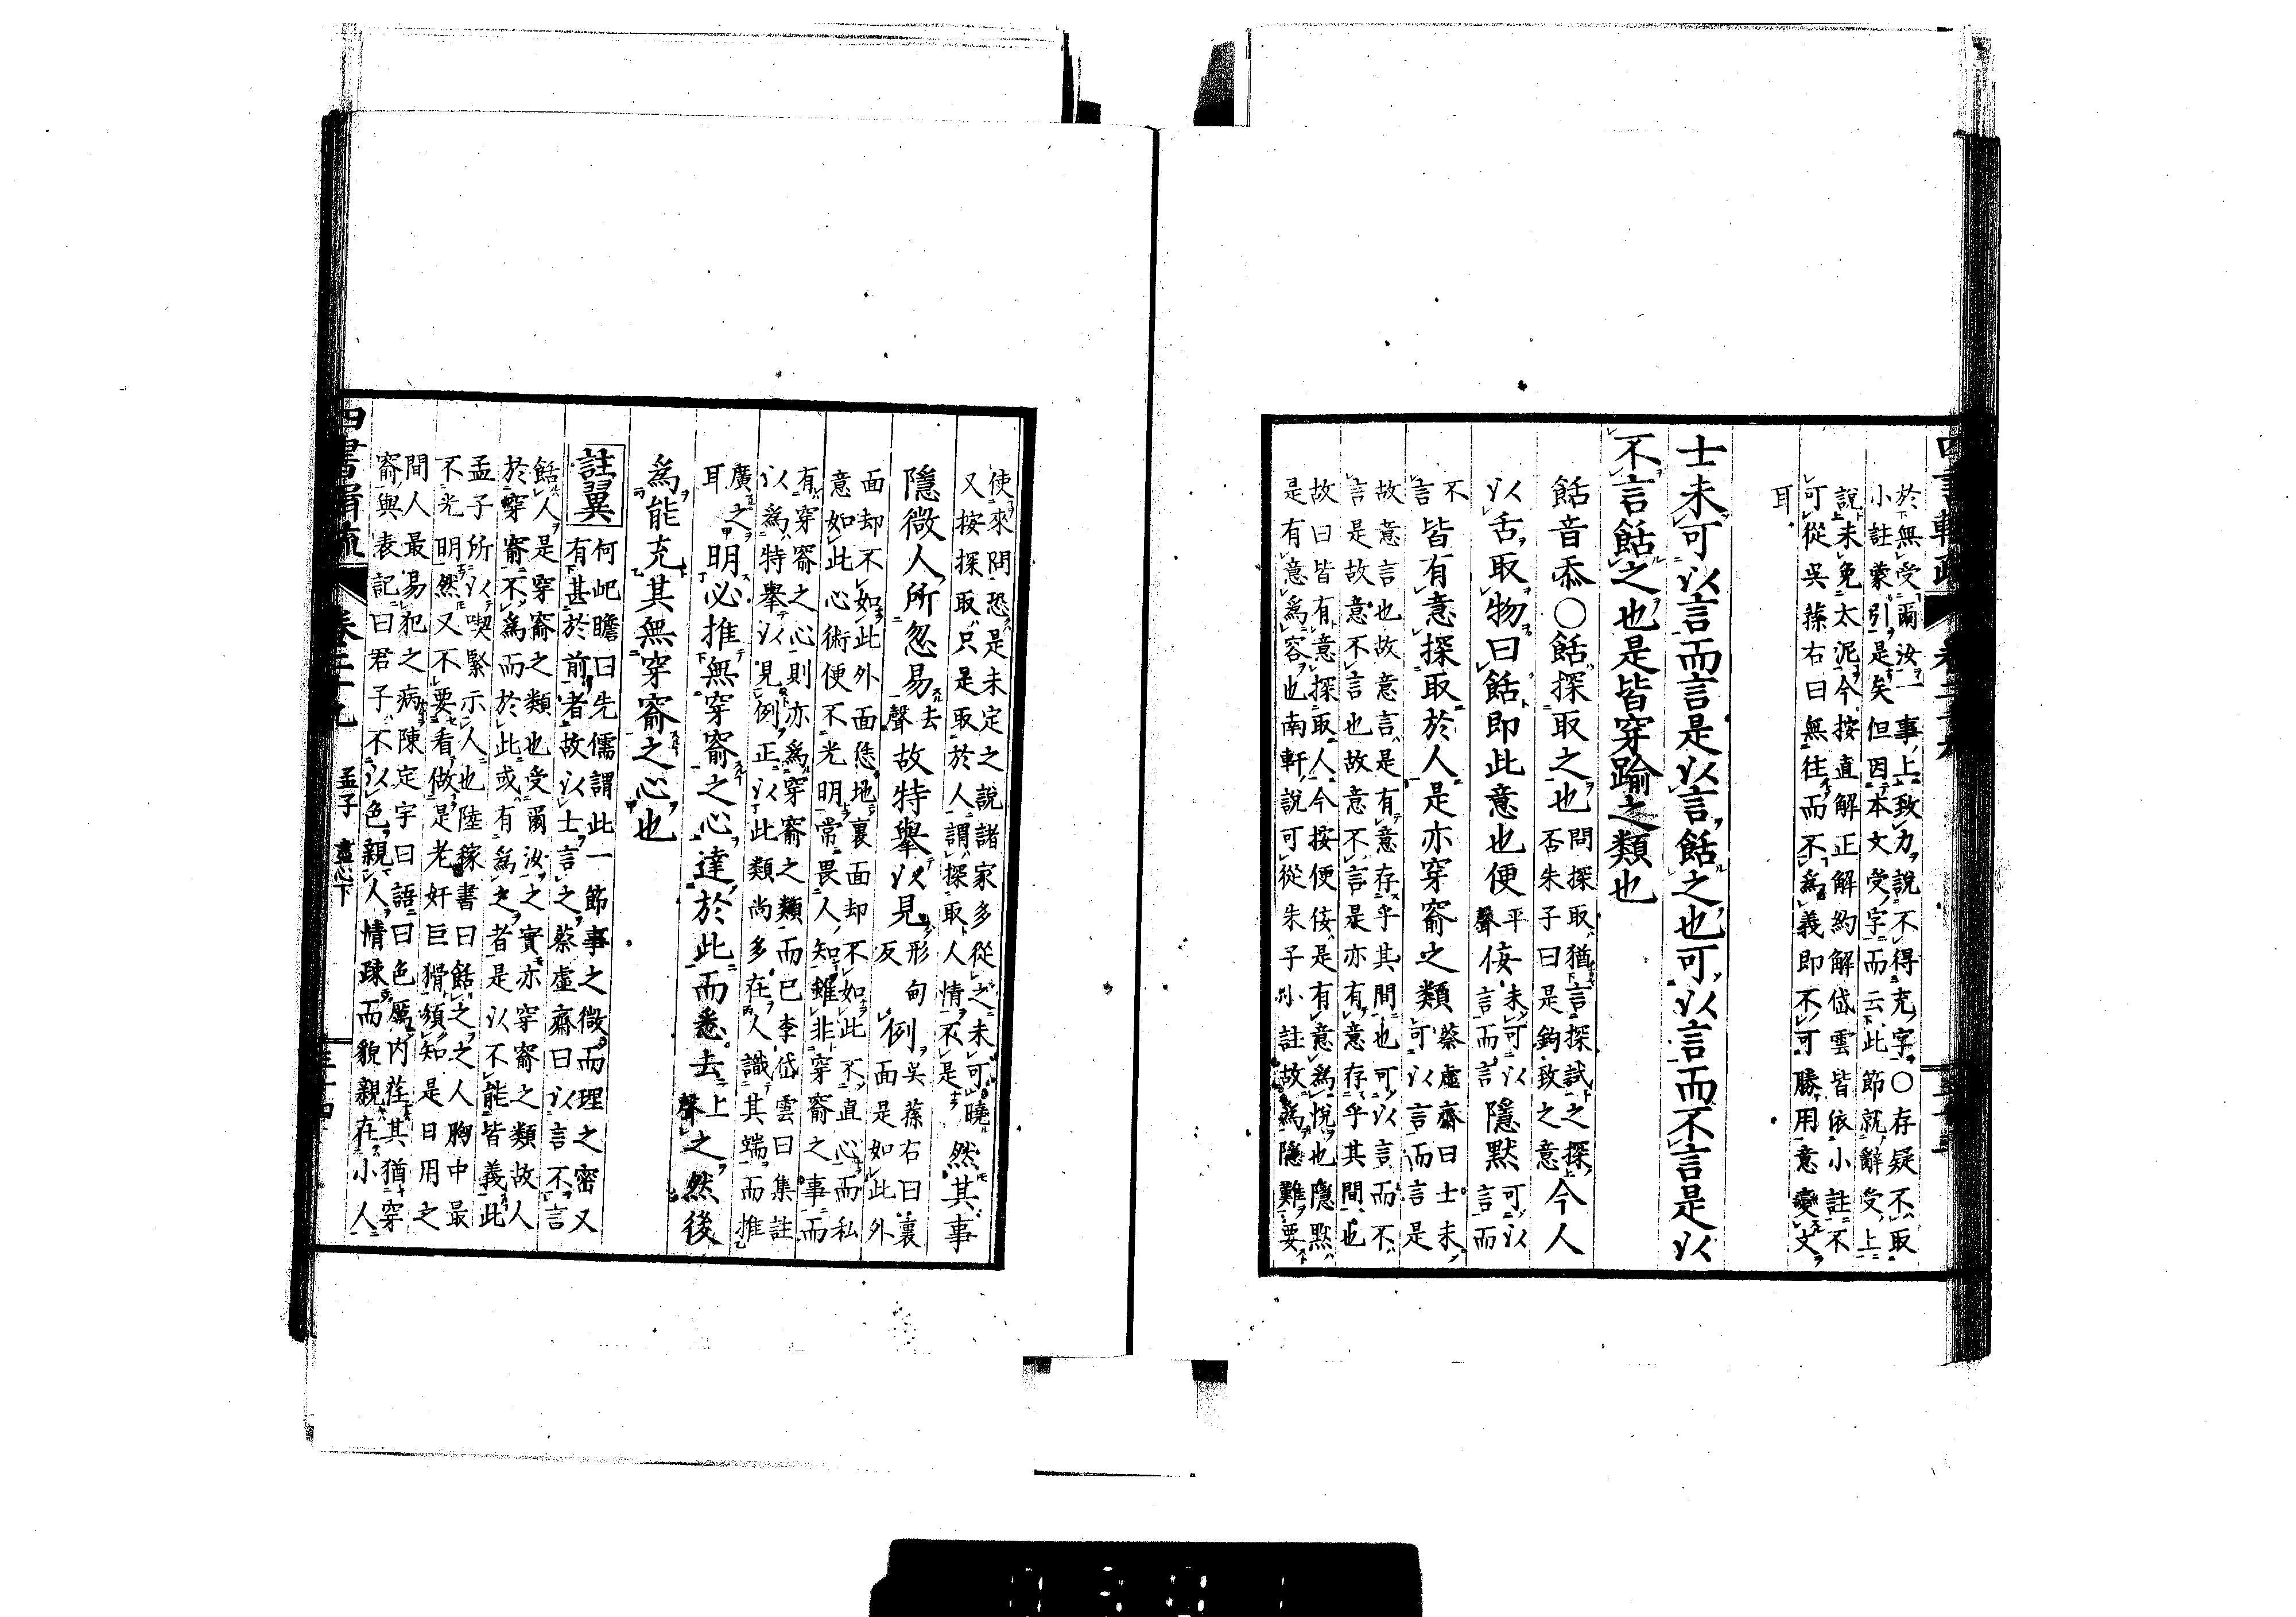 於無受爾汝一事上致力說不得充字○存疑不取
小註蒙引是矣但因本文受字而云此節就辭受上
說未免太泥今按直解正解約解岱雲皆依小註不
可從吳蓀右曰無往而不為義即不可勝用意變文
耳
士未可以言而言是以言餂之也可以言而不言是以
不言餂之也是皆穿踰之類也
餂音忝○餂探取之也
問探取猶言探試之探
否朱子曰是鈎致之意
今人
以舌取物曰餂即此意也便
平
聲
佞
未可以
言而言
隱默
可以
言而
不
言
皆有意探取於人是亦穿窬之類
蔡虛齋曰士未
可以言而言是
故意言也故意言是有意存乎其間也可以言而不
言是故意不言也故意不言是亦有意存乎其間也
故曰皆有意探取人今按便佞是有意為悅也隱默
是有意為容也南軒說可從朱子小註故為隱難要
使來問恐是未定之說諸家多從之未可曉
又按探取只是取於人謂探取人情不是
然其事
隱微人所忽易
去
聲
故特舉以見
形甸
反
例
吳蓀右曰裏
面是如此外
面却不如此外面恁地裏面却不如此不直心而私
意如此心術便不光明常畏人知雖非穿窬之事而
有穿窬之心則亦為穿窬之類而已李岱雲曰集註
以為特舉以見例正以此類尚多在人識其端而推
廣之
耳
明必推無穿窬之心達於此而悉去
上
聲
之然後
為能充其無穿窬之心也
註翼
何屺瞻曰先儒謂此一節事之微而理之密又
有甚於前者故以士言之蔡虛齋曰以言不言
餂人是穿窬之類也受爾汝之實亦穿窬之類故人
於穿窬不為而於此或有為之者是以不能皆義此
孟子所以喫緊示人也陸稼書曰餂之之人胸中最
不光明然又不要看做是老奸巨猾須知是日用之
間人最易犯之病陳定宇曰語曰色厲內荏其猶穿
窬與表記曰君子不以色親人情疎而貌親在小人
四書輯疏 卷二十九 孟子 盡心下 三十四